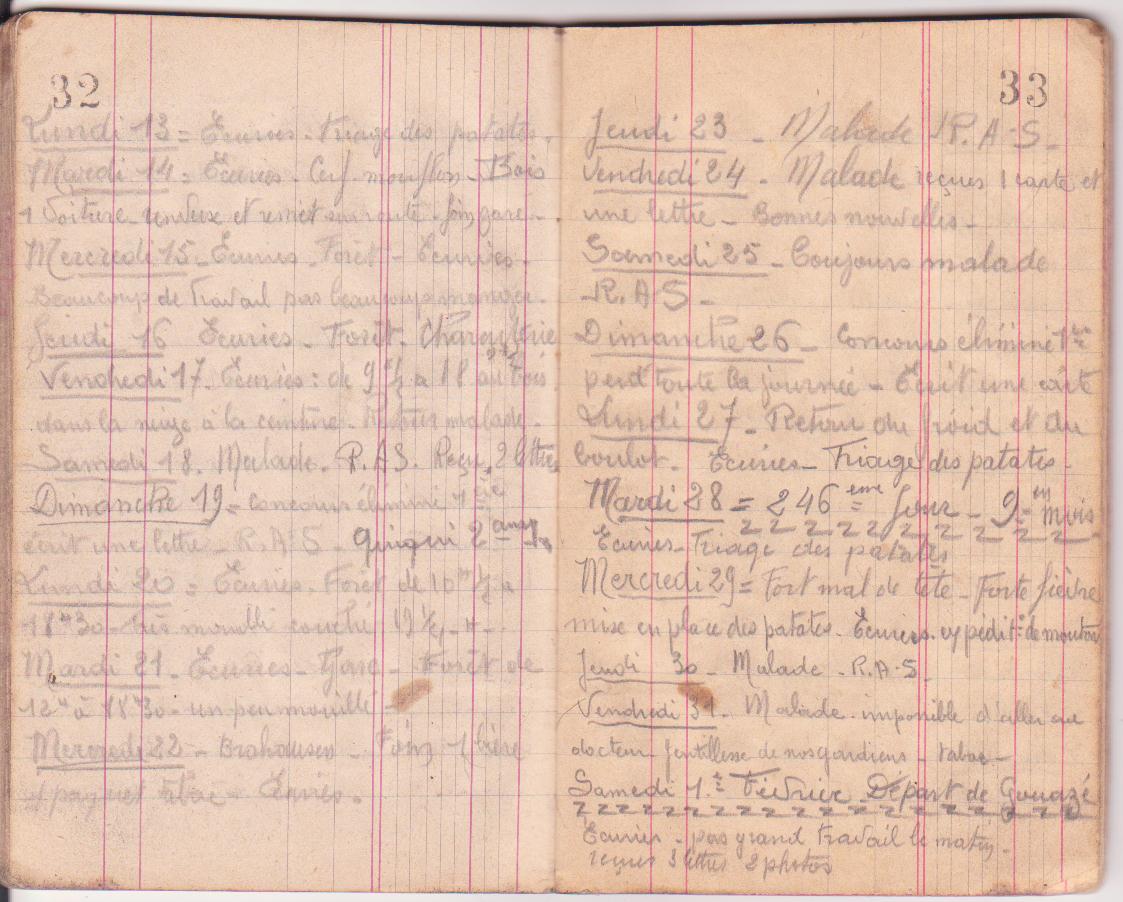 32
Lundi 13 = Écuries. Triage des patates.
Mardi 14 = Écuries. Cerf mouflon - Bois
1 voiture et remet sur route. foin gare -
Mercredi 15 - Écuries - Forêt - Écuries.
Beaucoup de travail pas beaucoup manger.
Jeudi 16 Écuries - Forêt.
Vendredi 17. Écuries : de 9h½ a 18 au bois
dans la neige à la ceinture. malade.
Samedi 18. Malade. R.A.S. Reçu 2 lettres
Dimanche 19 = concours éliminé 1ère
écrit une lettre - R.A.S - 2 ans
Lundi 20 = Écuries. Forêt de 10h½ a
18h30 - très mouillé couché 19½
Mardi 21. Écuries - Gare - Forêt de
12h à 18h30 - un peu mouillé -
Mercredi 22 - - Foin 1 bière
et paquet tabac - Écuries.
33
Jeudi 23 - Malade R.A.S -
Vendredi 24 - Malade reçues 1 carte et
une lettre - Bonnes nouvelles -
Samedi 25 - Toujours malade
R.A S -
Dimanche 26 - Concours éliminé 1ère
perd toute la journée - Écrit une carte
Lundi 27 - Retour du froid et du
boulot. Écuries - Triage des patates.
Mardi 28 = 246 eme Jour - 9 em mois
Écuries - Triage des patates
Mercredi 29 = Fort mal de tête - Forte fièvre
mise en place des patates. Écuries. expédit° de mouton
Jeudi 30 - Malade - R.A.S.
Vendredi 31 - Malade. impossible d'aller au
docteur gentillesse de nos gardiens - tabac -
Samedi 1er Février Départ de Gouazé
Écuries - pas grand travail le matin.
reçues 3 lettres 2 photos